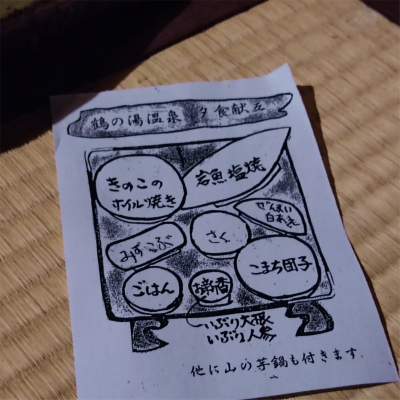 鶴の湯温泉 夕食献立
きのこの
ホイル焼き
岩魚塩焼
ぜんまい
白あえ
みずこぶ
さく
こまち団子
ごはん
お新香
いぶり大根
いぶり人参
他に山の芋鍋も付きます.